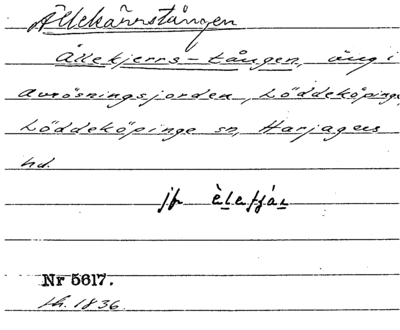 Ällekärrstången
Ållekjerrs-tången, äng i
avrösningsjorden, Löddeköpinge,
Löddeköpinge sn, Harjagers
hd.
jfr
Nr 5617.
1836.